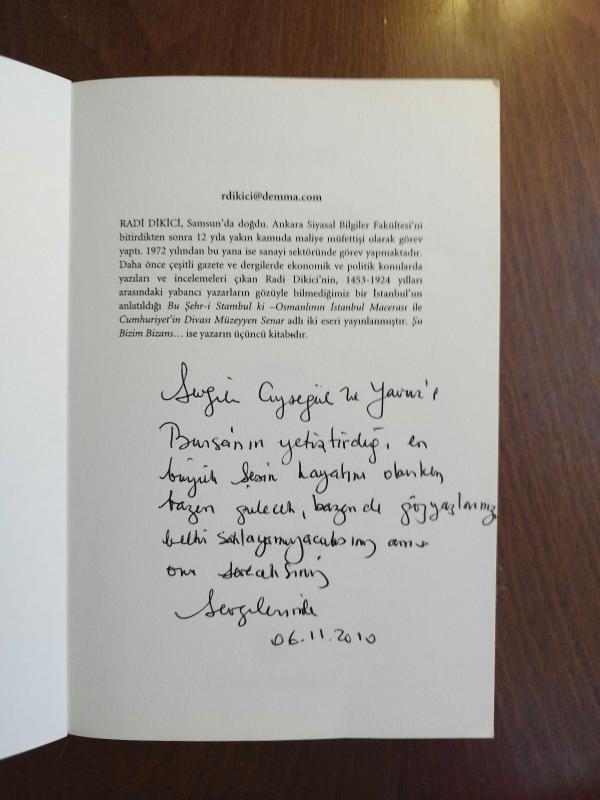 rdikici@demma.com
RADİ DİKİCİ, Samsun'da doğdu. Ankara Siyasal Bilgiler Fakültesi'ni
bitirdikten sonra 12 yıla yakın kamuda maliye müfettişi olarak görev
yaptı. 1972 yılından bu yana ise sanayi sektöründe görev yapmaktadır.
Daha önce çeşitli gazete ve dergilerde ekonomik ve politik konularda
yazıları ve incelemeleri çıkan Radi Dikici'nin, 1453-1924 yılları
arasındaki yabancı yazarların gözüyle bilmediğimiz bir İstanbul'un
anlatıldığı Bu Şehr-i Stambul ki –Osmanlının İstanbul Macerası ile
Cumhuriyet'in Divası Müzeyyen Senar adlı iki eseri yayınlanmıştır. Şu
Bizim Bizans… ise yazarın üçüncü kitabıdır.
Sevgili Ayşegül ve Yavuz'a
Bursa'nın yetiştirdiği, en
büyük Sesin hayatını okurken
bazen gülecek, bazende gözyaşlarınızı
belki saklayamıyacaksınız ama
onu seveceksiniz
Sevgilerimle
06.11.2010